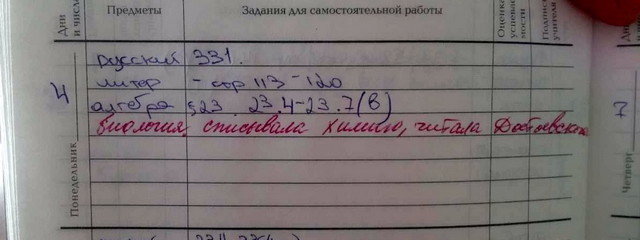 Дни и числа
Предметы
Задания для самостоятельной работы
Оценка успеваемости
Подпись учителя
Дни
и чис
4
Понедельник
русский 331.
литер - стр 113-120
алгебра §23. 23.4-23.7(в)
Биология, списывала химию, читала Достоевского
7
Четверг